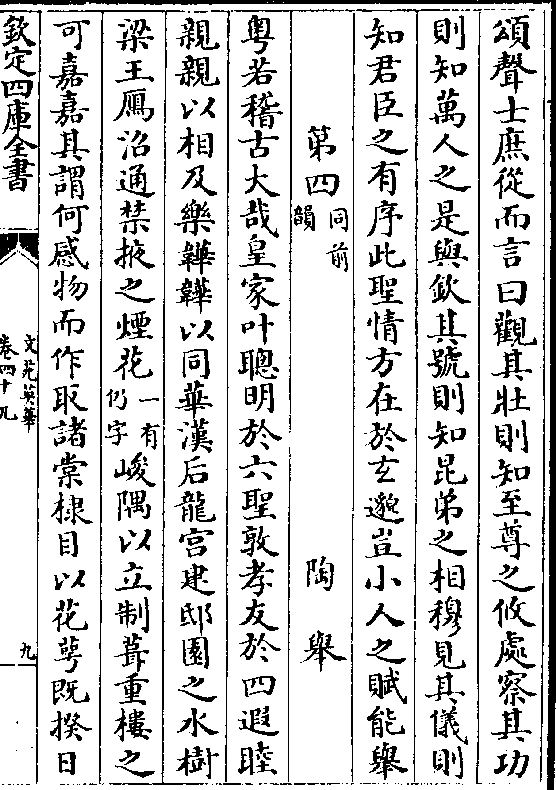 頌聲士庶從而言曰觀其壯則知至尊之攸處察其功
則知萬人之是與欽其號則知昆弟之相穆見其儀則
知君臣之有序此聖情方在於玄邈豈小人之賦能舉
第四同前韻 陶舉
粤若稽古大哉皇家叶聰明於六聖敦孝友於四遐睦
親親以相及樂韡韡以同華漢后龍宫建邸園之水樹
梁王鴈沼通禁掖之煙花一有仍字峻隅以立制葺重樓之
可嘉嘉其謂何感物而作取諸棠棣目以花萼既揆日
欽定四庫全書
文苑英華
卷四十九
九